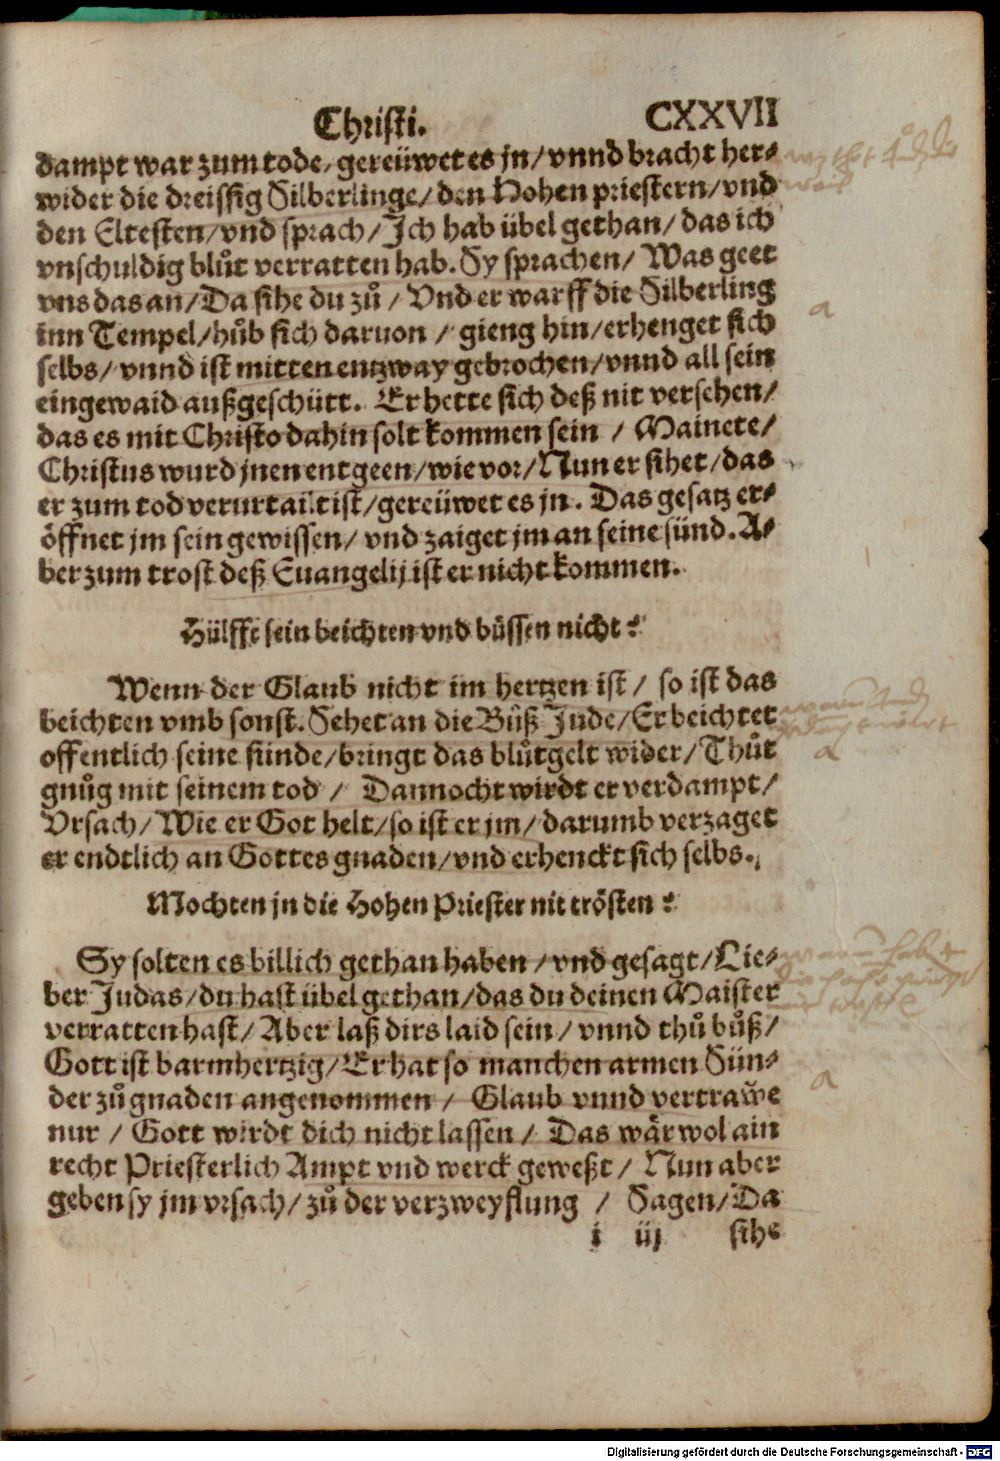 Christi. CXXVII
dampt war zum tode/ gereüwet es jn/ vnnd bracht her⸗
wider die dreissig Silberlinge/ den Hohen priestern/ vnd
den Eltesten/ vnd sprach/ Ich hab übel gethan/ das ich
vnschuldig blůt verratten hab. Sy sprachen/ Was geet
vns das an/ Da sihe du zů/ Vnd er warff die Silberling
inn Tempel/ hůb sich daruon/ gieng hin/ erhenget sich
selbs/ vnnd ist mitten entzway gebrochen/ vnnd all sein
eingewaid außgeschütt. Er hette sich deß nit versehen/
das es mit Christo dahin solt kommen sein/ Mainete/
Christus wurd jnen entgeen/ wie vor/ Nun er sihet/ das
er zum tod verurtailt ist/ gereüwet es jn. Das gesatz er⸗
öffnet jm sein gewissen/ vnd zaiget jm an seine sünd. A⸗
ber zum trost deß Euangelij ist er nicht kommen.
Hülffe sein beichten vnd büssen nicht?
Wenn der Glaub nicht im hertzen ist/ so ist das
beichten vmb sonst. Sehet an die Bůß Jude/ Er beichtet
offentlich seine sünde/ bringt das blůtgelt wider/ Thůt
gnůg mit seinem tod/ Dannocht wirdt er verdampt/
Vrsach/ Wie er Got helt/ so ist er jm/ darumb verzaget
er endtlich an Gottes gnaden/ vnd erhenckt sich selbs.
Mochten jn die Hohen Priester nit trösten?
Sy solten es billich gethan haben/ vnd gesagt/ Lie⸗
ber Judas/ du hast übel gethan/ das du deinen Maister
verratten hast/ Aber laß dirs laid sein/ vnnd thů bůß/
Gott ist barmhertzig/ Er hat so manchen armen Sün⸗
der zů gnaden angenommen/ Glaub vnnd vertrawe
nur/ Gott wirdt dich nicht lassen/ Das wär wol ain
recht Priesterlich Ampt vnd werck geweßt/ Nun aber
geben sy jm vrsach/ zů der verzweyflung/ Sagen/ Da
i iij sihe
a
a
a
Digitalisierung gefördert durch die Deutsche Forschungsgemeinschaft - DFG